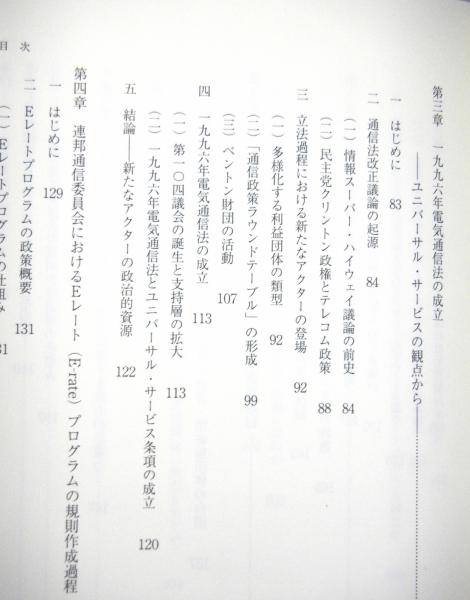 第三章　一九九六年電気通信法の成立
――ユニバーサル・サービスの観点から――
一　はじめに　83
二　通信法改正議論の起源　84
(一)　情報スーパー・ハイウェイ議論の前史　84
(二)　民主党クリントン政権とテレコム政策　88
三　立法過程における新たなアクターの登場　92
(一)　多様化する利益団体の類型　92
(二)　「通信政策ラウンドテーブル」の形成　99
(三)　ベントン財団の活動　107
四　一九九六年電気通信法の成立　113
(一)　第一〇四議会の誕生と支持層の拡大　113
(二)　一九九六年電気通信法とユニバーサル・サービス条項の成立　120
五　結論――新たなアクターの政治的資源　122
第四章　連邦通信委員会におけるEレート（E-rate）プログラムの規則作成過程
一　はじめに　129
二　Eレートプログラムの政策概要　131
(一)　Eレートプログラムの仕組み　131
目次